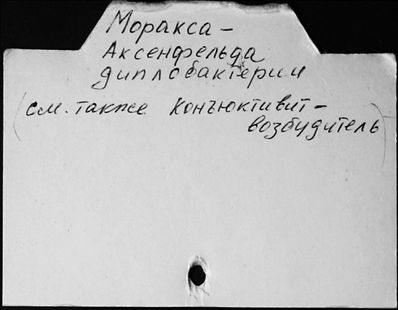 Моракса –
Аксенфельда
диплобактерии
(см. также Конъюктивит –
возбудитель)